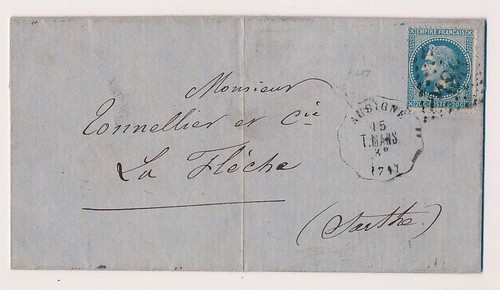 EMPIRE FRANÇAIS
20 C POSTES 20 C
AUBIGNÉ
15
T. MANS
Monsieur
Tonnellier et Cie
La Flèche
(Sarthe)